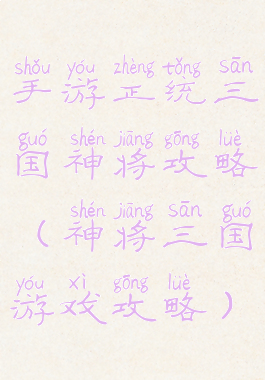 shǒu yóu zhèng tǒng sān
手游正统三
guó shén jiāng gōng lüè
国神将攻略
shén jiāng sān guó
（神将三国
yóu xì gōng lüè
游戏攻略）